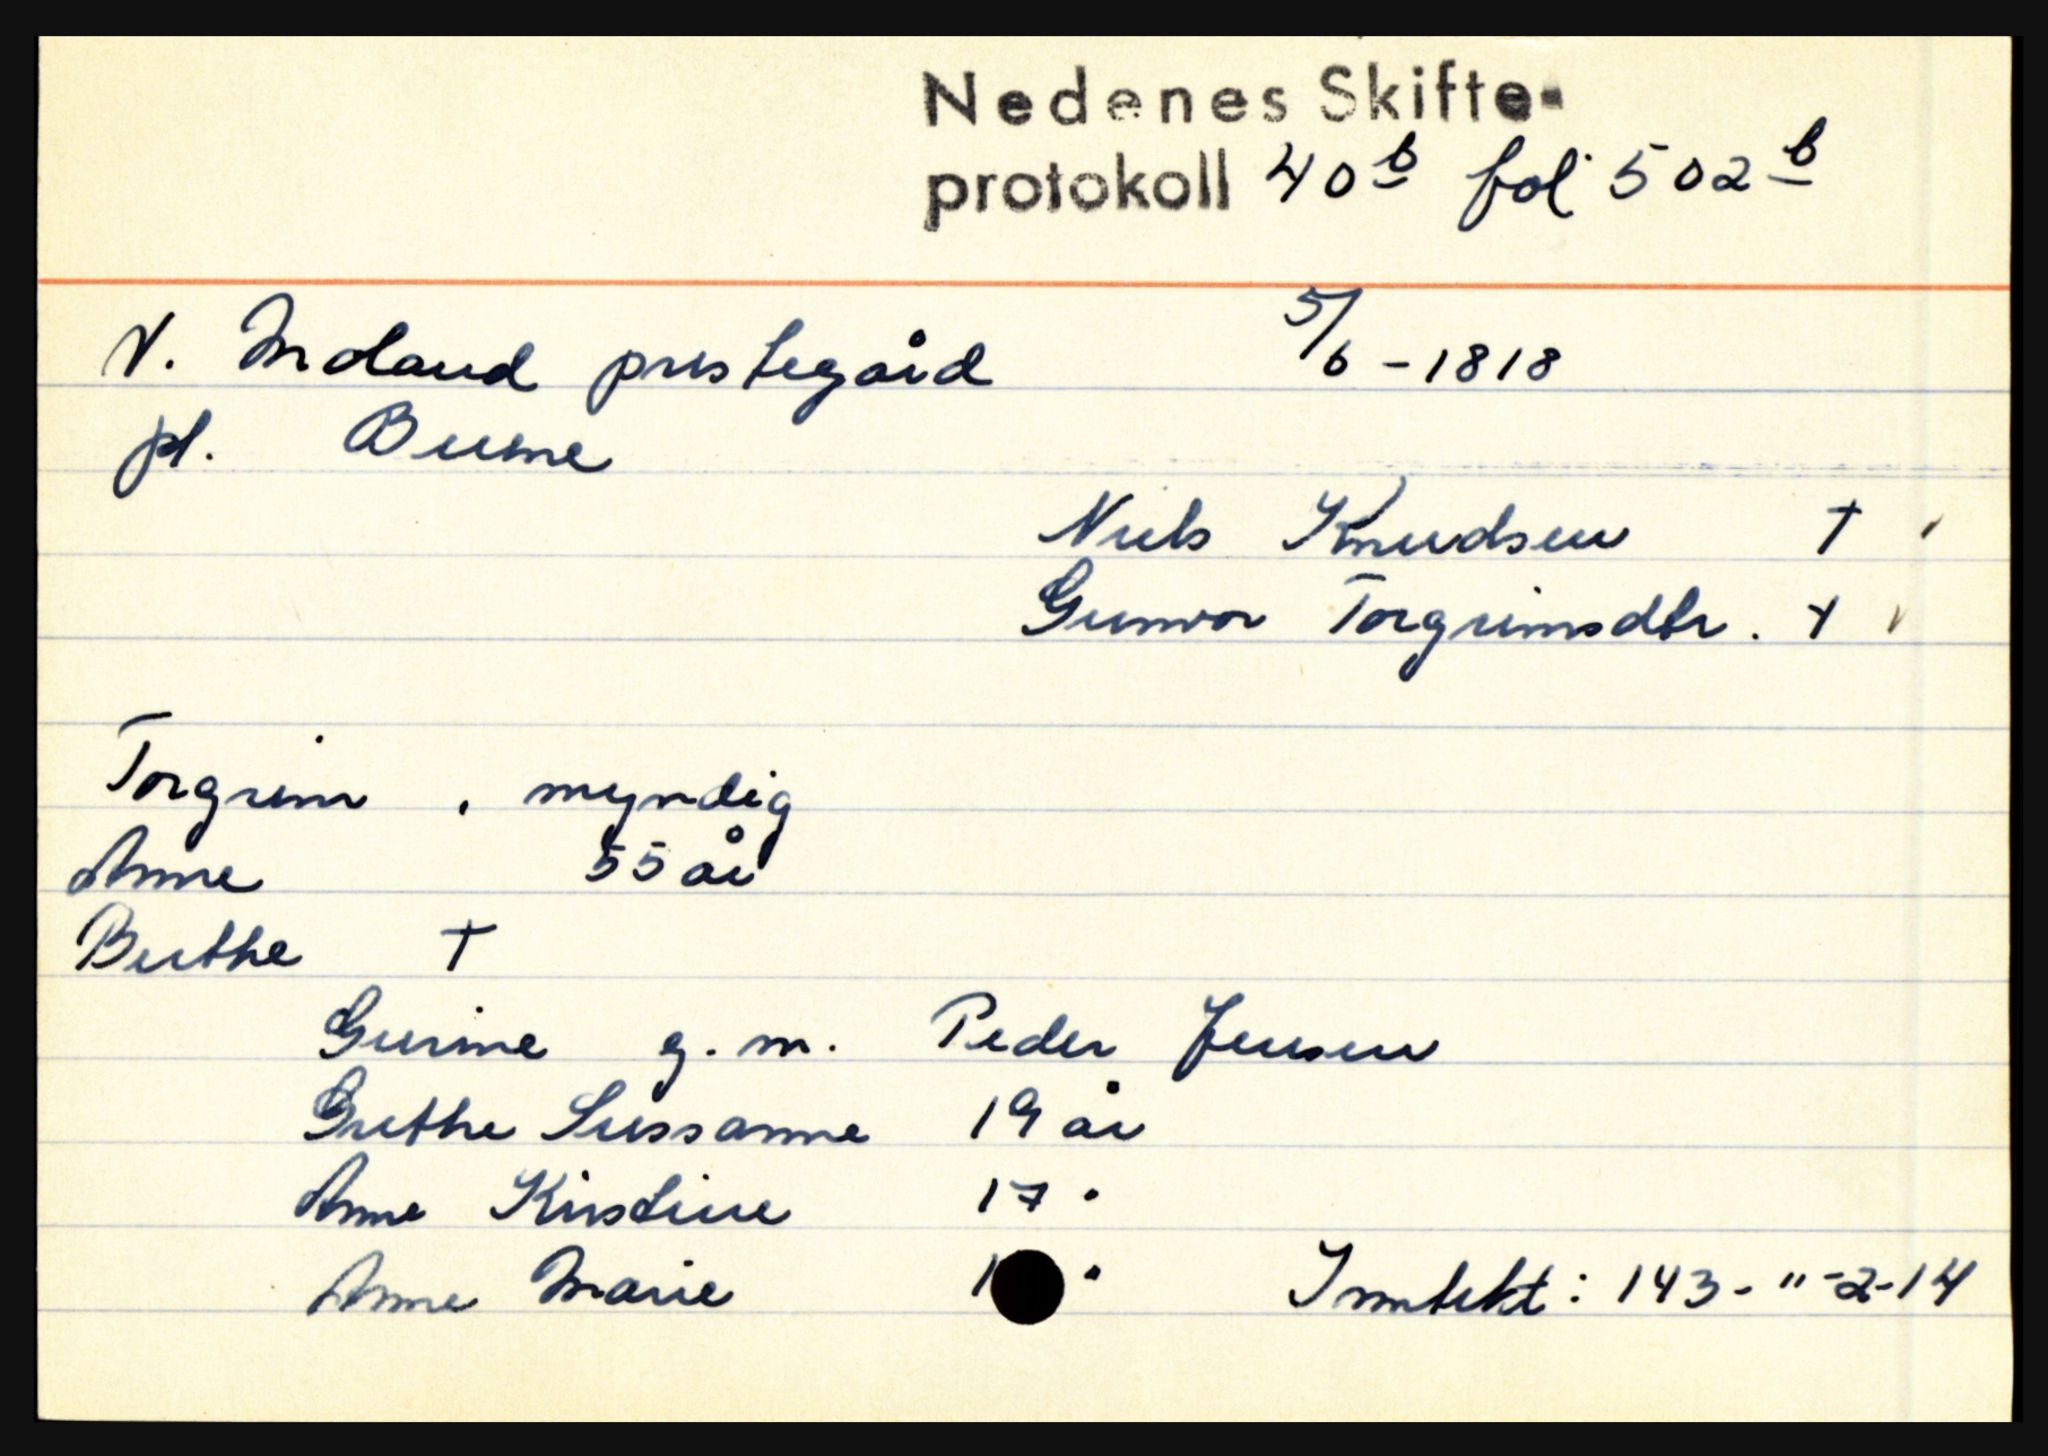 Nedenes Skifte-
protokoll 40b fol 502b
V. Moland prestegård 5/6 - 1818
pl. Buene
Niels Knudsen †
Gunvor Torgrimsdtr. †
Torgrim , myndig
Anne 55 år
Berthe †
Gurine g. m. Peder Jensen
Grethe Sussanne 19 år
Anne Kirstine 17 "
Anne Marie 1 " Inntekt: 143 - " - 2 - 14